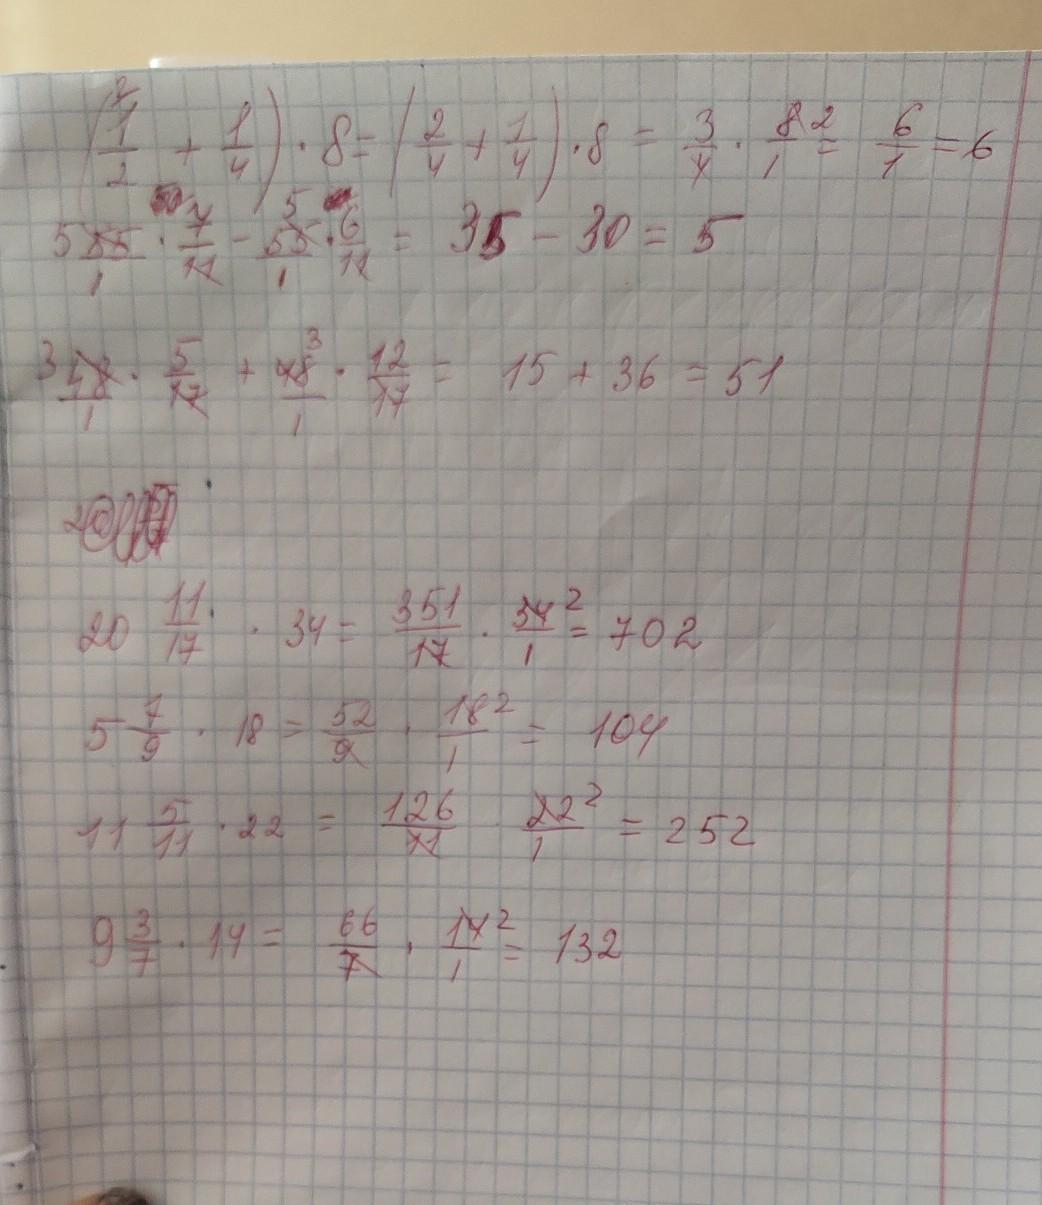 (1/2 + 1/4) · 8 = (2/4 + 1/4) · 8 = 3/4 · 8/1 2 = 6/1 = 6
5 55/1 · 7/11 - 55/1 5 · 6/11 = 35 - 30 = 5
3 48/1 · 5/17 + 48/1 3 · 12/17 = 15 + 36 = 51
20 11/17 · 34 = 351/17 · 34/1 2 = 702
5 7/9 · 18 = 52/9 · 18/1 2 = 104
11 5/11 · 22 = 126/11 · 22/1 2 = 252
9 3/7 · 14 = 66/7 · 14/1 2 = 132